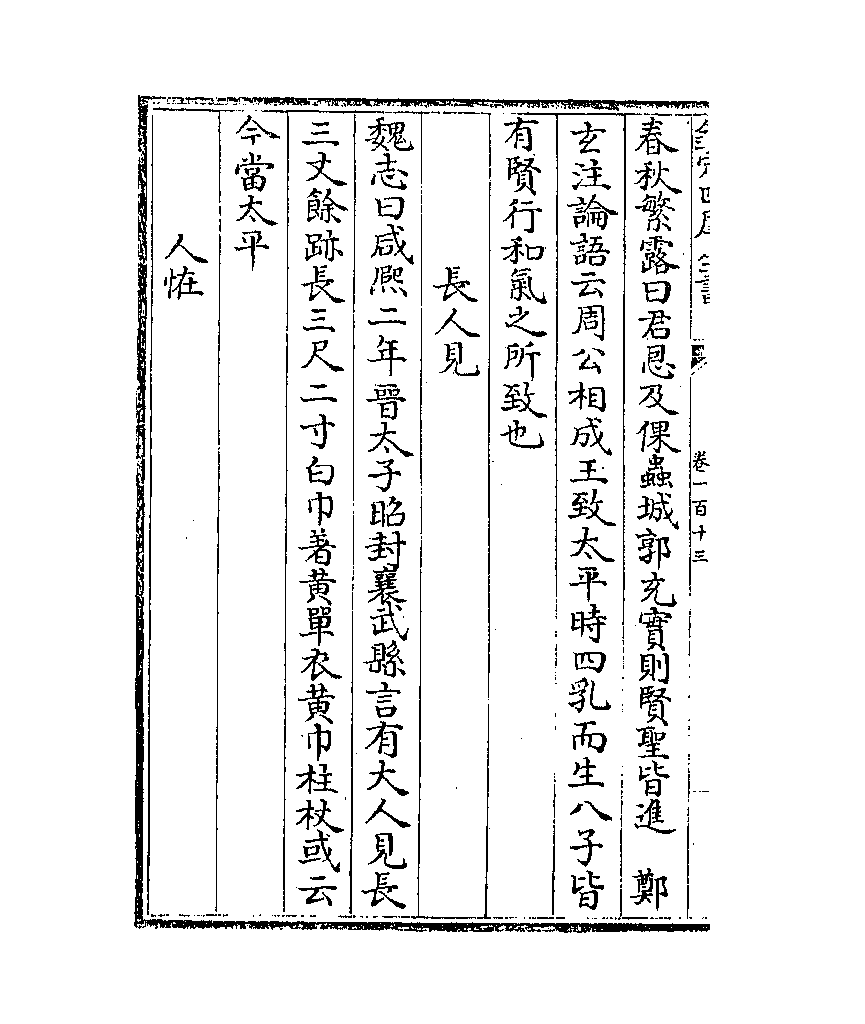 欽定四庫全書 卷一百十三
春秋繁露曰君恩及倮蟲城郭充實則賢聖皆進 鄭
玄注論語云周公相成王致太平時四乳而生八子皆
有賢行和氣之所致也
長人見
魏志曰咸熈二年晉太子昭封襄武縣言有大人見長
三丈餘跡長三尺二寸白巾著黄單衣黄巾柱杖或云
今當太平
人恠